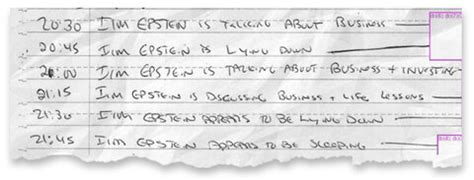 20:30 I/M EPSTEIN IS TALKING ABOUT BUSINESS
20:45 I/M EPSTEIN IS LYING DOWN
21:00 I/M EPSTEIN IS TALKING ABOUT BUSINESS + INVESTING
21:15 I/M EPSTEIN IS DISCUSSING BUSINESS + LIFE LESSONS
21:30 I/M EPSTEIN APPEARS TO BE LYING DOWN
21:45 I/M EPSTEIN APPEARS TO BE SLEEPING